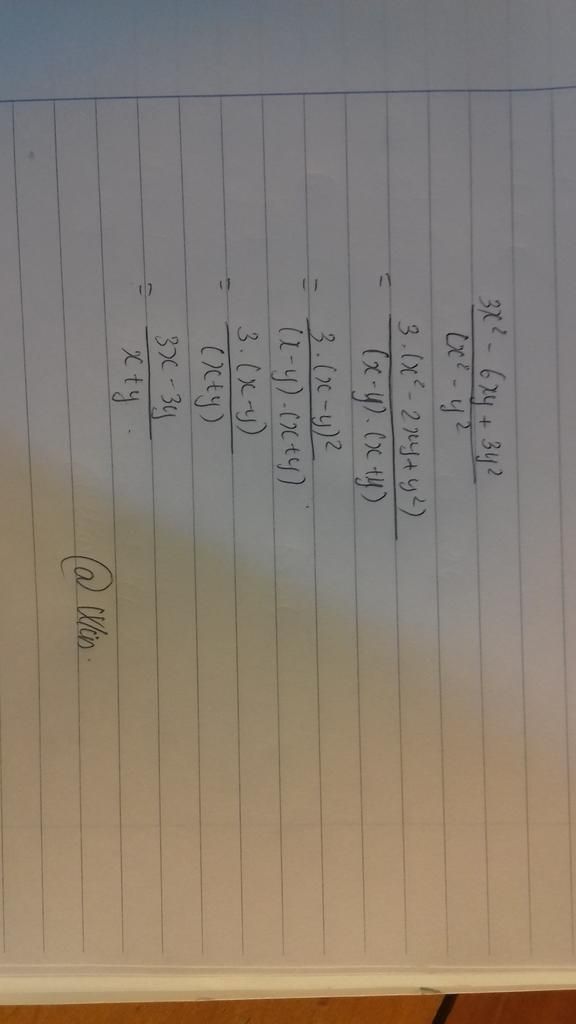 3x² - 6xy + 3y²
(x² - y²
= 3 . (x² - 2xy + y²)
(x - y) . (x + y)
= 3 . (x - y)²
(x - y) . (x + y)
= 3 . (x - y)
(x + y)
= 3x - 3y
x + y .